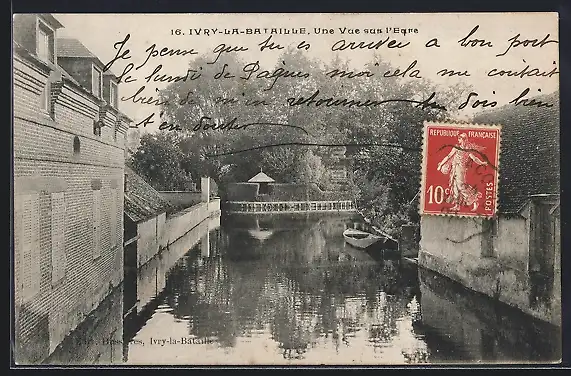 16. IVRY-LA-BATAILLE, Une Vue sur l'Eure
Je pense que tu es arrivée a bon port
le lundi de Pagues moi cela me contait
bien de m'en retourner tu dois bien
t'en douter
REPUBLIQUE FRANÇAISE
10c POSTES
Ivry-la-Bataille